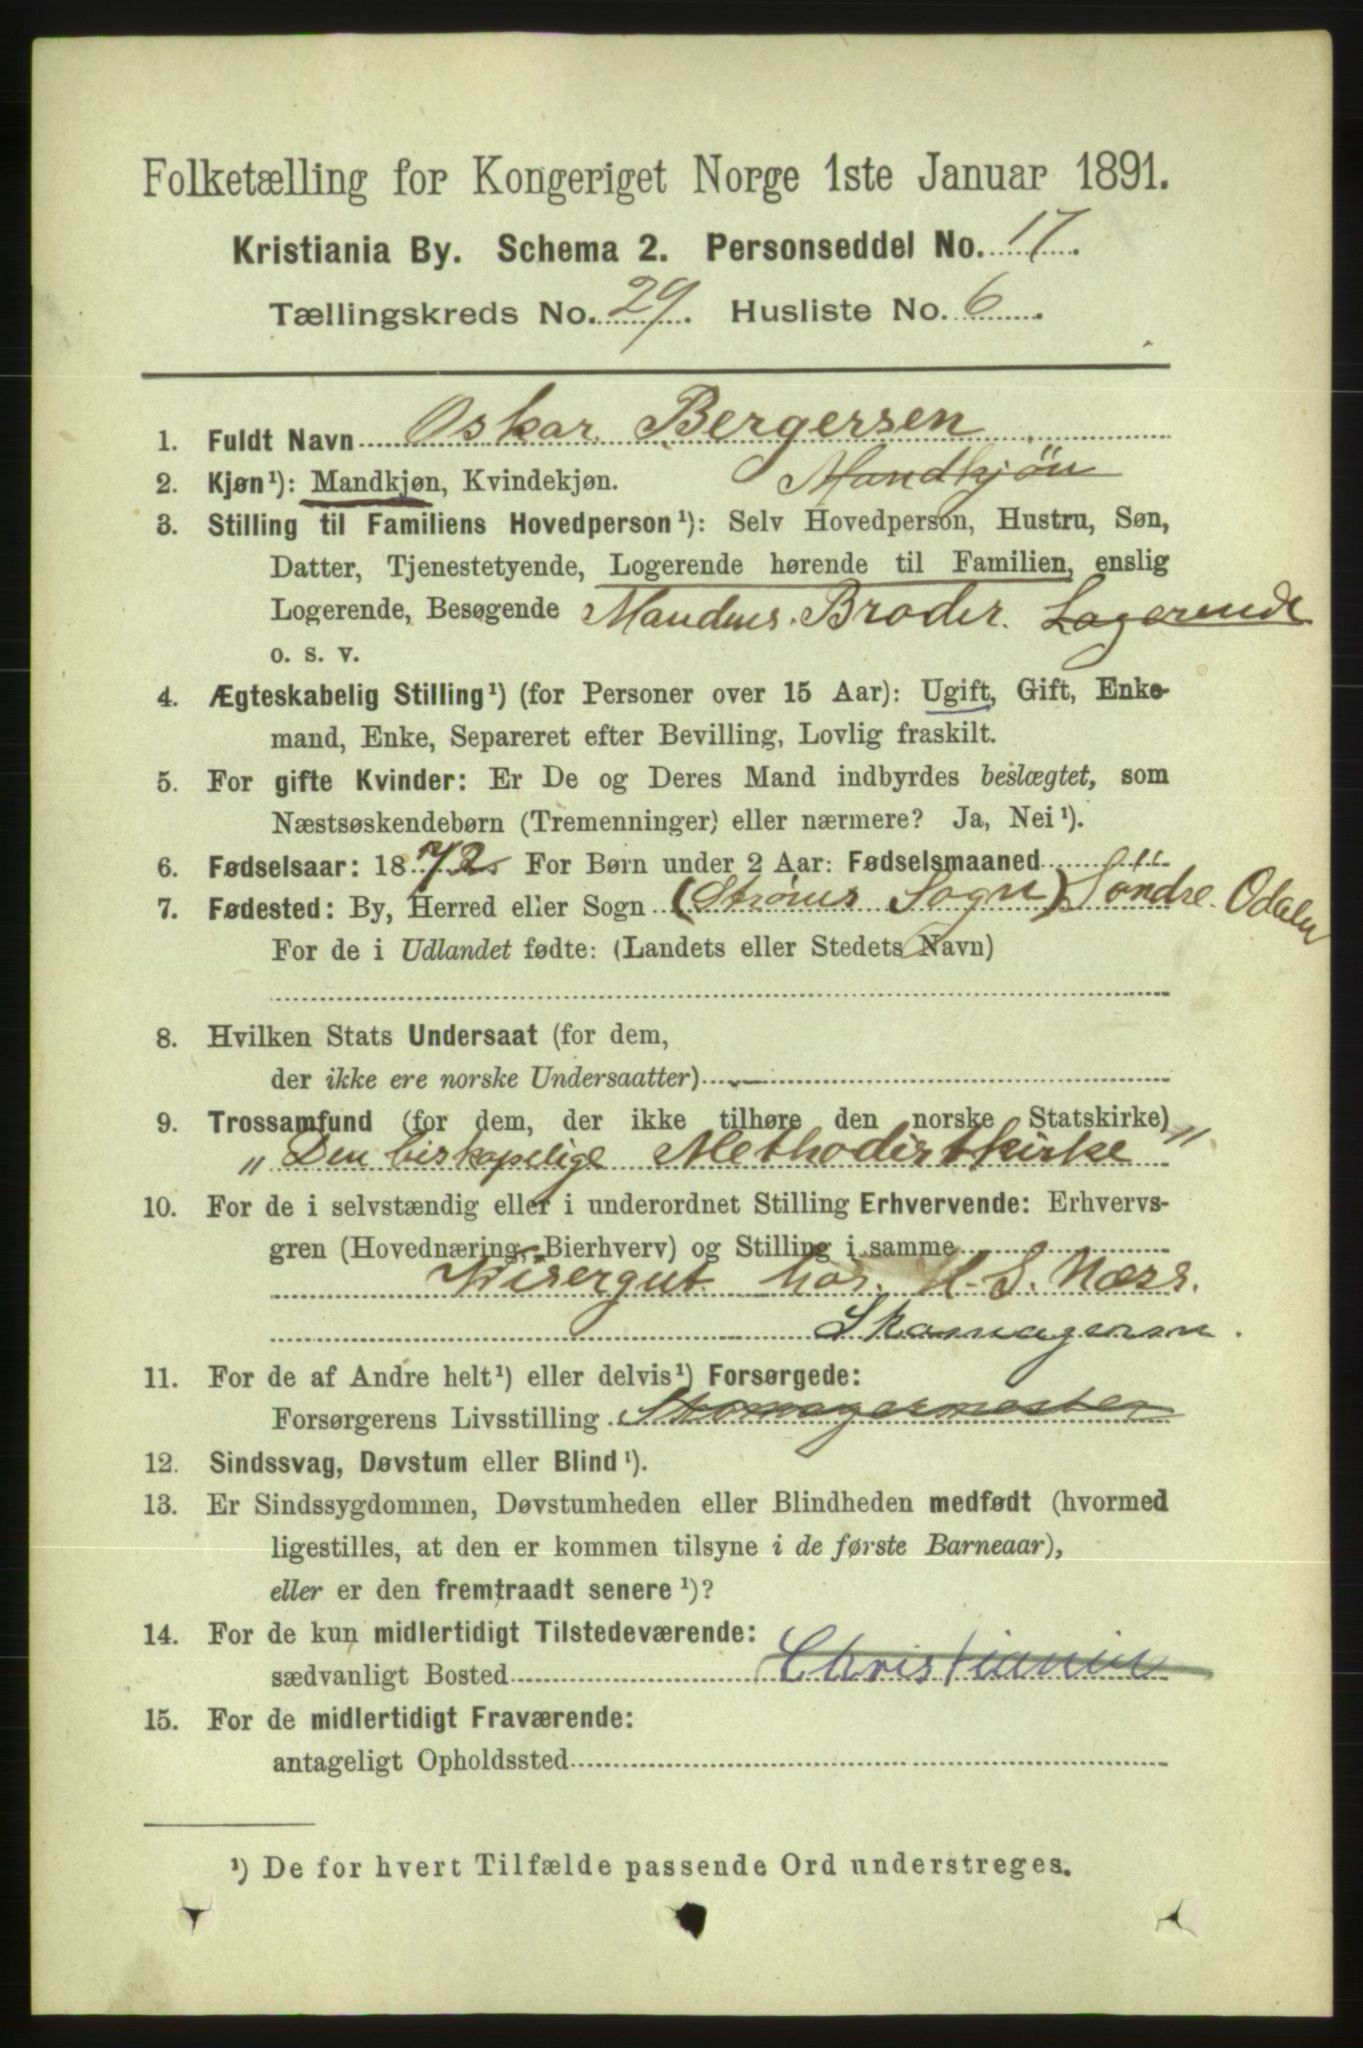 Folketælling for Kongeriget Norge 1ste Januar 1891.
Kristiania By. Schema 2. Personseddel No. 17.
Tællingskreds No. 29. Husliste No. 6.
1. Fuldt Navn Oskar Bergersen
2. Kjøn¹): Mandkjøn, Kvindekjøn. Mandkjön
3. Stilling til Familiens Hovedperson¹): Selv Hovedperson, Hustru, Søn,
Datter, Tjenestetyende, Logerende hørende til Familien, enslig
Logerende, Besøgende Mandens. Broder. Logerende
o. s. v.
4. Ægteskabelig Stilling¹) (for Personer over 15 Aar): Ugift, Gift, Enke-
mand, Enke, Separeret efter Bevilling, Lovlig fraskilt.
5. For gifte Kvinder: Er De og Deres Mand indbyrdes beslægtet, som
Næstsøskendebørn (Tremenninger) eller nærmere? Ja, Nei¹).
6. Fødselsaar: 1872 For Børn under 2 Aar: Fødselsmaaned
7. Fødested: By, Herred eller Sogn (Strøms Sogn) Söndre Odalen
For de i Udlandet fødte: (Landets eller Stedets Navn)
8. Hvilken Stats Undersaat (for dem,
der ikke ere norske Undersaatter)
9. Trossamfund (for dem, der ikke tilhøre den norske Statskirke)
„Den biskopelige Methodistkirke"
10. For de i selvstændig eller i underordnet Stilling Erhvervende: Erhvervs-
gren (Hovednæring, Bierhverv) og Stilling i samme
Visergut hos. H. S. Næss.
Skomageren.
11. For de af Andre helt¹) eller delvis¹) Forsørgede:
Forsørgerens Livsstilling Skomagermester
12. Sindssvag, Døvstum eller Blind¹).
13. Er Sindssygdommen, Døvstumheden eller Blindheden medfødt (hvormed
ligestilles, at den er kommen tilsyne i de første Barneaar),
eller er den fremtraadt senere¹)?
14. For de kun midlertidigt Tilstedeværende:
sædvanligt Bosted Christiania
15. For de midlertidigt Fraværende:
antageligt Opholdssted
¹) De for hvert Tilfælde passende Ord understreges.